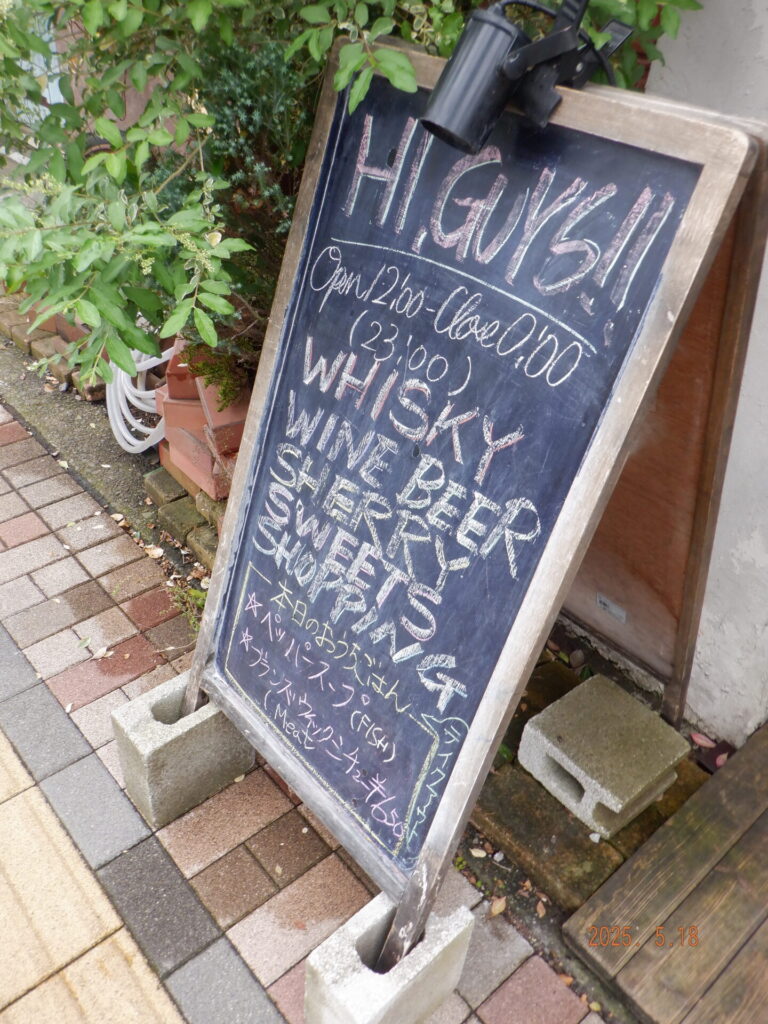 HI, GUYS!!
Open 12:00 - Close 0:00
(23:00)
WHISKY
WINE BEER
SHERRY
SWEETS
SHOPPING
本日のおうちごはん
☆ペッパースープ (FISH)
☆ブランズウィックシチュー ¥650
(Meat
テイクアウト
2025. 5.18